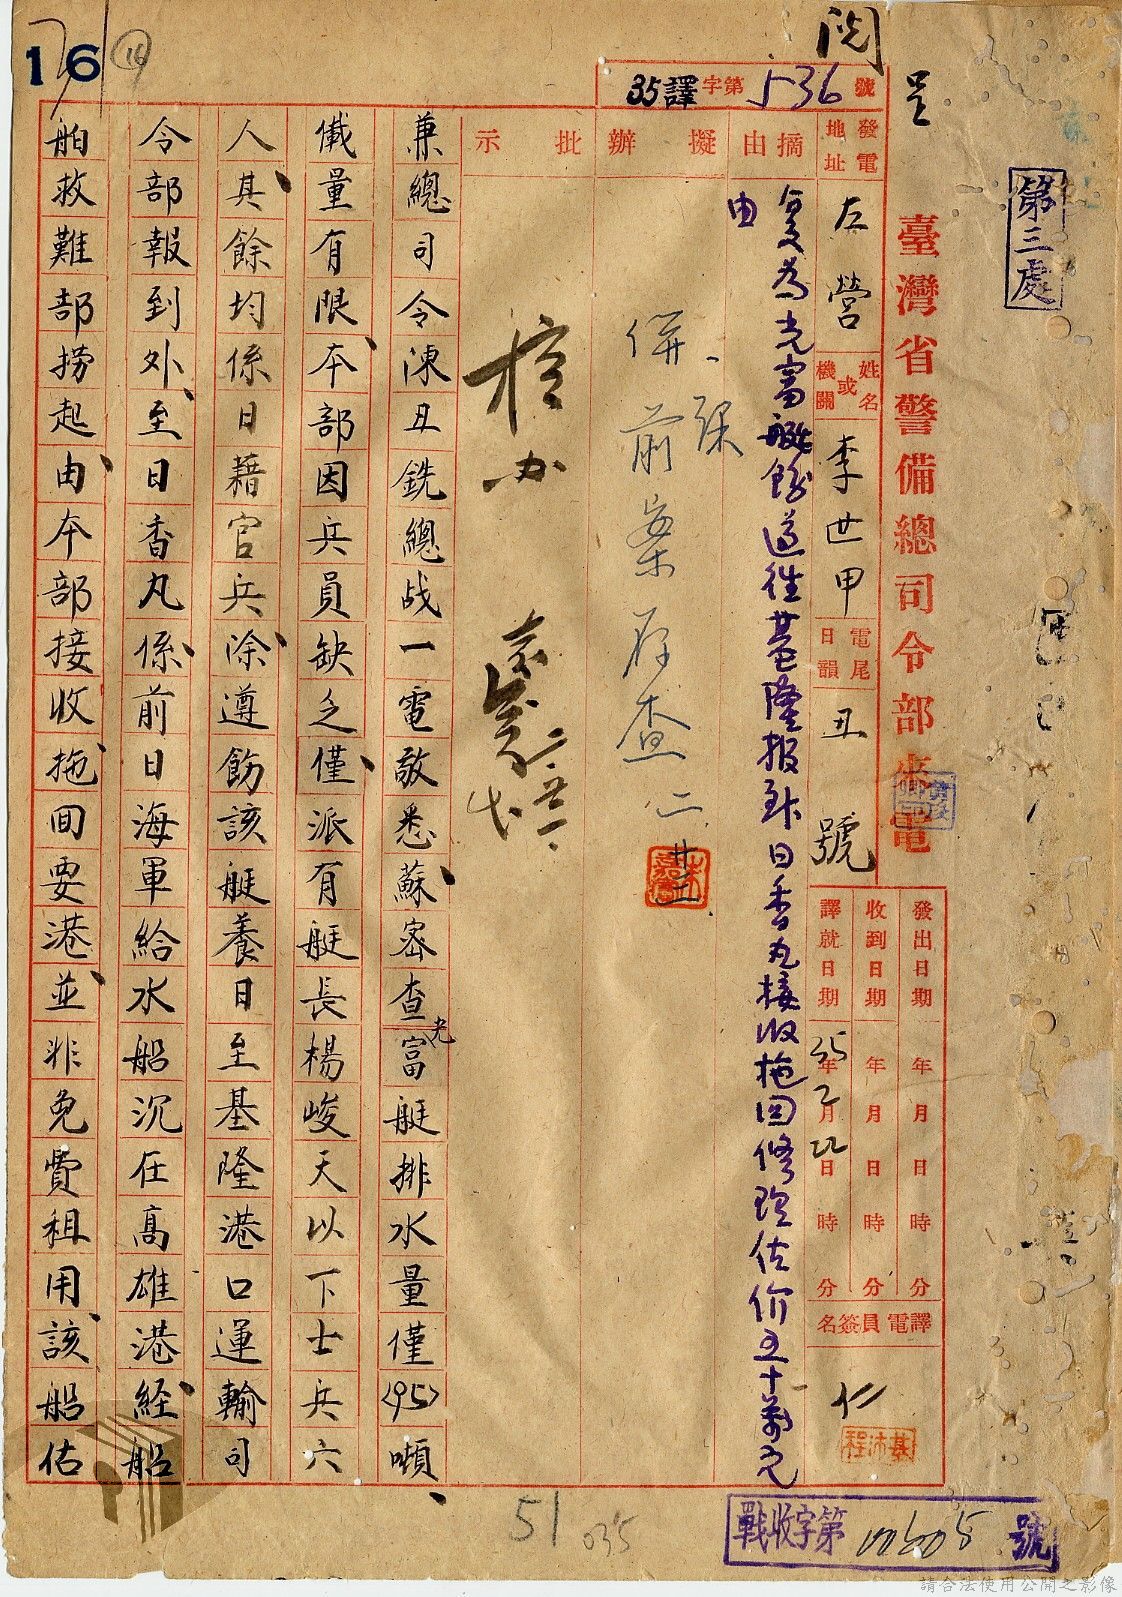 閱
呈
第三處
臺灣省警備總司令部來電
35譯字第536號
發電地址
左營
姓名或機關
李世甲
電尾日韻
丑
號
發出日期 年 月 日 時 分
收到日期 年 月 日 時 分
譯就日期 35年2月22日 時 分
譯電員簽名
仁
摘由
復為光富艇飭遵往基隆報到日香丸接收拖回修理估價五十萬元
由
擬辦
併前案存查 二廿二
批示
兼總司令陳丑銑總战一電敬悉蘇密查光富艇排水量僅(95)噸、
儎量有限、本部因兵員缺乏、僅派有艇長楊峻天以下士兵六
人、其餘均係日藉官兵、除遵飭該艇養日至基隆港口運輸司
令部報到外、至日香丸、係前日海軍給水船沉在高雄港、經船
舶救難部捞起、由本部接收、拖回要港、並非免費租用、該船估
16
16
51
035
戰收字第00605號
請合法使用公開之影像